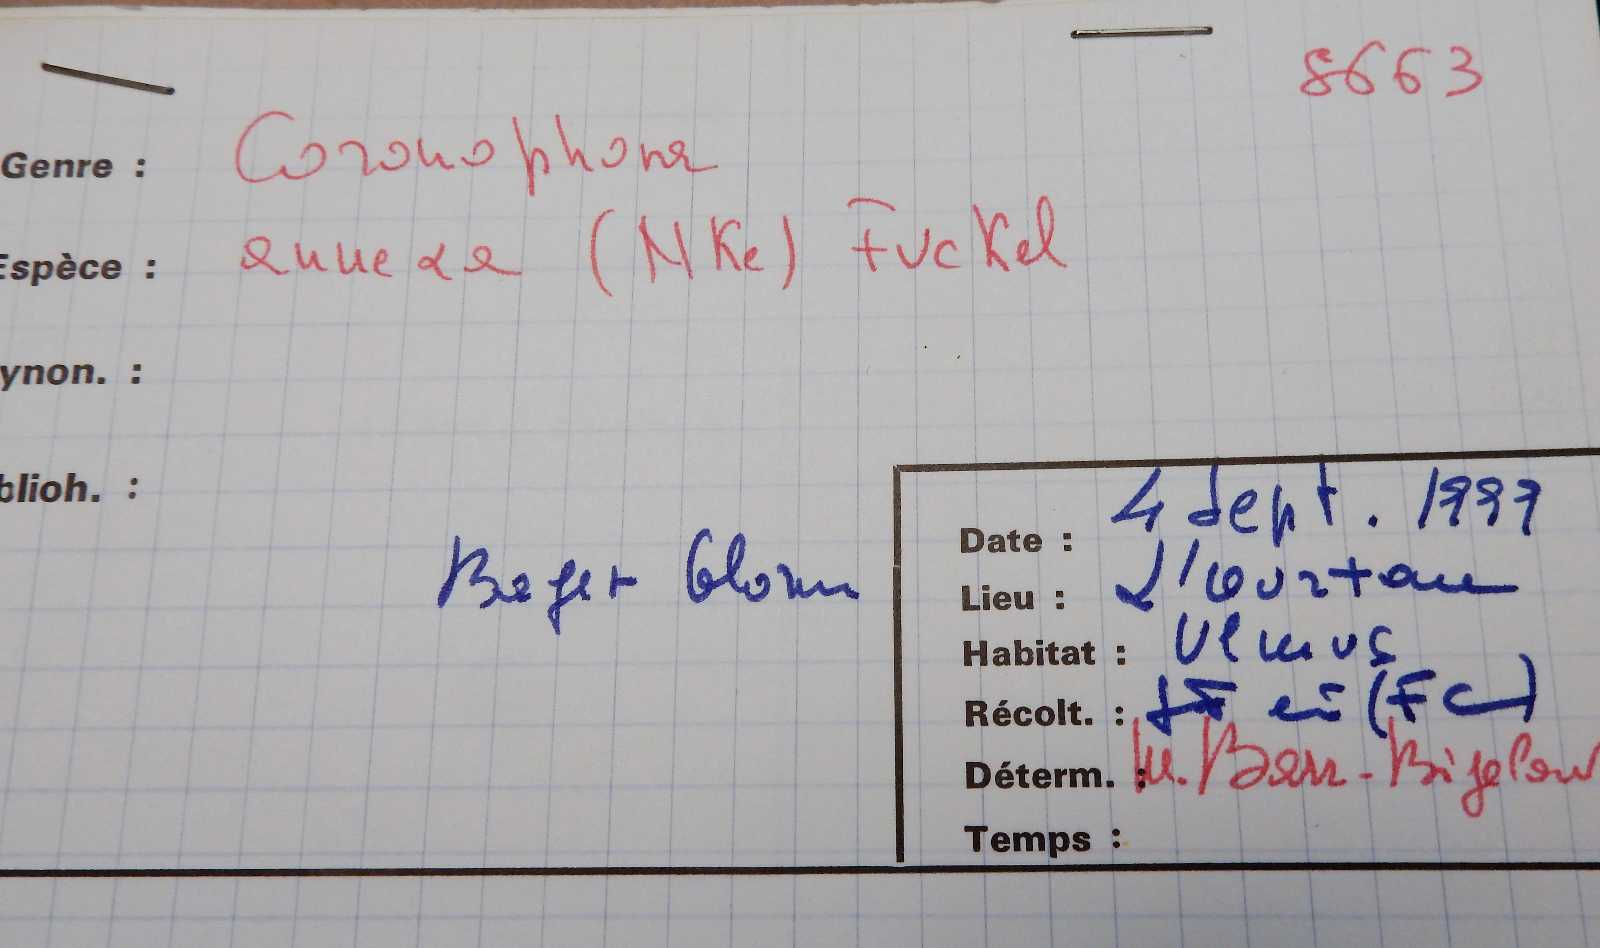 8663
Genre : Coronophora
Espèce : annexa (NKe) Fuckel
ynon. :
blioh. :
Date : 4 Sept. 1999
Lieu : L'ourtau
Habitat : Ulmus
Récolt. : (FC)
Déterm. : M. Barr-Bigelow
Temps :